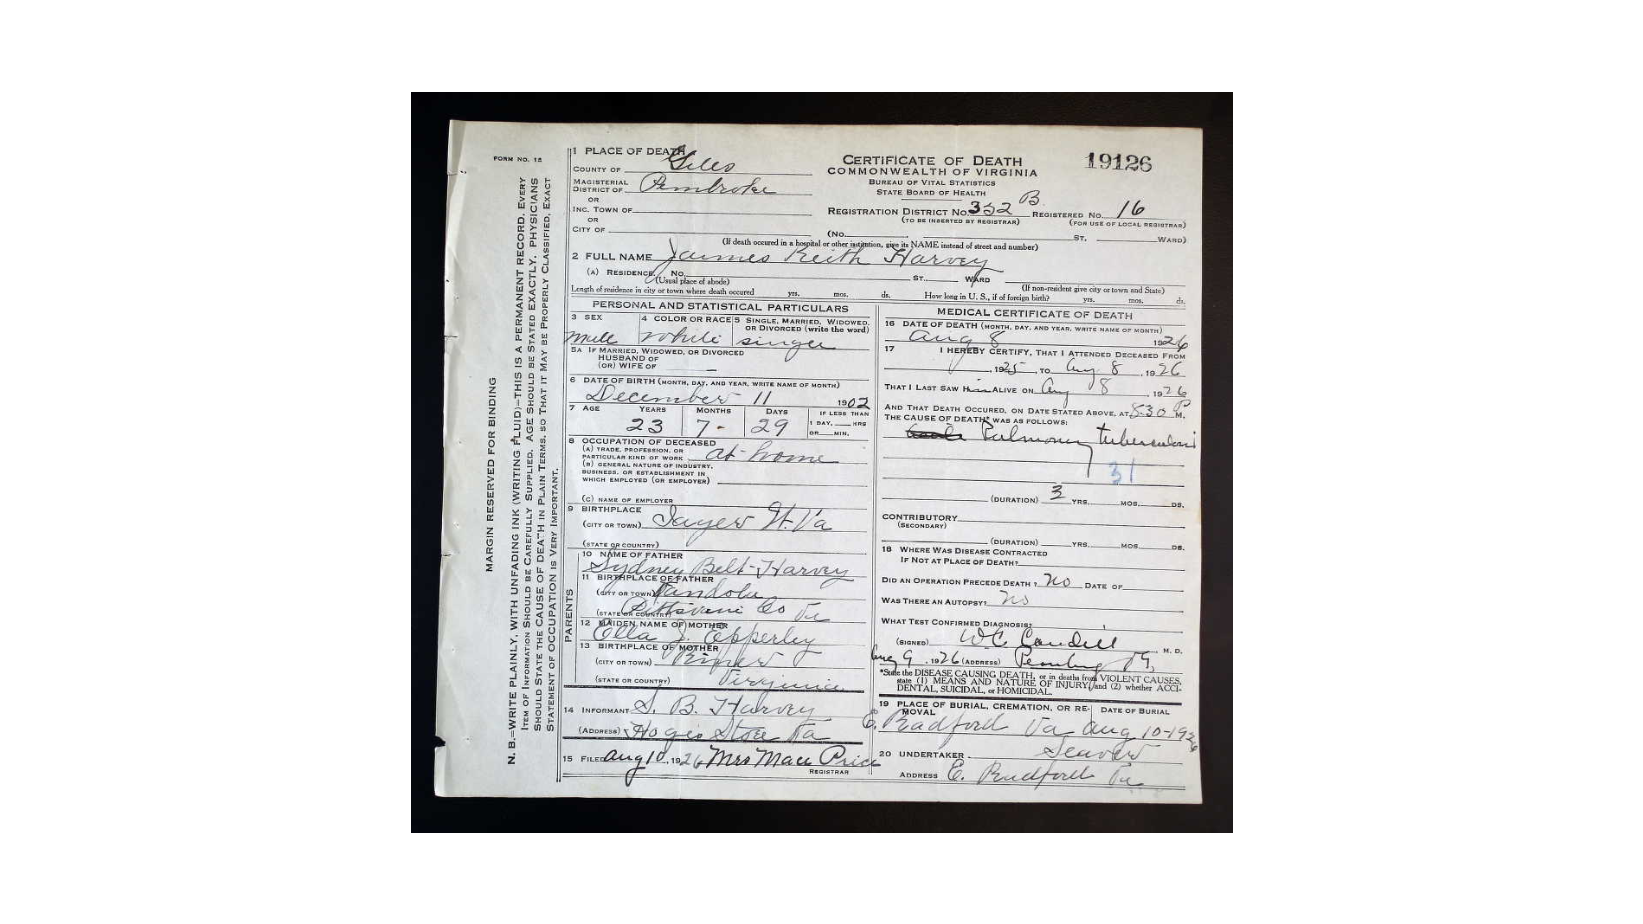 FORM NO. 15
MARGIN RESERVED FOR BINDING
N. B.—WRITE PLAINLY, WITH UNFADING INK (WRITING FLUID)—THIS IS A PERMANENT RECORD. EVERY
ITEM OF INFORMATION SHOULD BE CAREFULLY SUPPLIED. AGE SHOULD BE STATED EXACTLY. PHYSICIANS
SHOULD STATE THE CAUSE OF DEATH IN PLAIN TERMS, SO THAT IT MAY BE PROPERLY CLASSIFIED. EXACT
STATEMENT OF OCCUPATION IS VERY IMPORTANT.
1 PLACE OF DEATH
COUNTY OF Giles
MAGISTERIAL
DISTRICT OF Pembroke
OR
INC. TOWN OF
OR
CITY OF
CERTIFICATE OF DEATH
COMMONWEALTH OF VIRGINIA
BUREAU OF VITAL STATISTICS
STATE BOARD OF HEALTH
19126
REGISTRATION DISTRICT NO. 352 B. REGISTERED NO. 16
(TO BE INSERTED BY REGISTRAR) (FOR USE OF LOCAL REGISTRAR)
(NO. ST. WARD)
(If death occured in a hospital or other institution, give its NAME instead of street and number)
2 FULL NAME James Keith Harvey
(A) RESIDENCE. No. ST. WARD
(Usual place of abode) (If non-resident give city or town and State)
Length of residence in city or town where death occured yrs. mos. ds. How long in U. S., if of foreign birth? yrs. mos. ds.
PERSONAL AND STATISTICAL PARTICULARS
3 SEX 4 COLOR OR RACE 5 SINGLE, MARRIED, WIDOWED,
OR DIVORCED (write the word)
male white single
5A IF MARRIED, WIDOWED, OR DIVORCED
HUSBAND OF
(OR) WIFE OF
6 DATE OF BIRTH (MONTH, DAY, AND YEAR, WRITE NAME OF MONTH)
December 11 1902
7 AGE YEARS MONTHS DAYS IF LESS THAN
23 7- 29 1 DAY, HRS
OR MIN.
8 OCCUPATION OF DECEASED
(A) TRADE, PROFESSION, OR
PARTICULAR KIND OF WORK at-home
(B) GENERAL NATURE OF INDUSTRY,
BUSINESS, OR ESTABLISHMENT IN
WHICH EMPLOYED (OR EMPLOYER)
(C) NAME OF EMPLOYER
9 BIRTHPLACE
(CITY OR TOWN) W. Va
(STATE OR COUNTRY)
PARENTS
10 NAME OF FATHER
Sydney Belt Harvey
11 BIRTHPLACE OF FATHER
(CITY OR TOWN)
(STATE OR COUNTRY) Co Va
12 MAIDEN NAME OF MOTHER
Ella J. Epperley
13 BIRTHPLACE OF MOTHER
(CITY OR TOWN) Riner
(STATE OR COUNTRY) Virginia
14 INFORMANT S. B. Harvey
(ADDRESS) Hoges Store Va
15 FILED Aug 10, 1926 Mrs Mace Price
REGISTRAR
MEDICAL CERTIFICATE OF DEATH
16 DATE OF DEATH (MONTH, DAY, AND YEAR, WRITE NAME OF MONTH)
Aug 8 1926
17 I HEREBY CERTIFY, THAT I ATTENDED DECEASED FROM
1925, TO Aug 8, 1926
THAT I LAST SAW Him ALIVE ON Aug 8, 1926
AND THAT DEATH OCCURED, ON DATE STATED ABOVE, AT 5:30 P M.
THE CAUSE OF DEATH* WAS AS FOLLOWS:
Pulmonary tuberculosis
31
(DURATION) 3 YRS. MOS. DS.
CONTRIBUTORY
(SECONDARY)
(DURATION) YRS. MOS. DS.
18 WHERE WAS DISEASE CONTRACTED
IF NOT AT PLACE OF DEATH?
DID AN OPERATION PRECEDE DEATH? No DATE OF
WAS THERE AN AUTOPSY? No
WHAT TEST CONFIRMED DIAGNOSIS?
(SIGNED) W C Caudill M. D.
Aug 9, 1926 (ADDRESS) Va
*State the DISEASE CAUSING DEATH, or in deaths from VIOLENT CAUSES,
state (1) MEANS AND NATURE OF INJURY, and (2) whether ACCI-
DENTAL, SUICIDAL, or HOMICIDAL.
19 PLACE OF BURIAL, CREMATION, OR RE- DATE OF BURIAL
MOVAL
E. Radford Va Aug 10-1926
20 UNDERTAKER
ADDRESS E. Radford Va